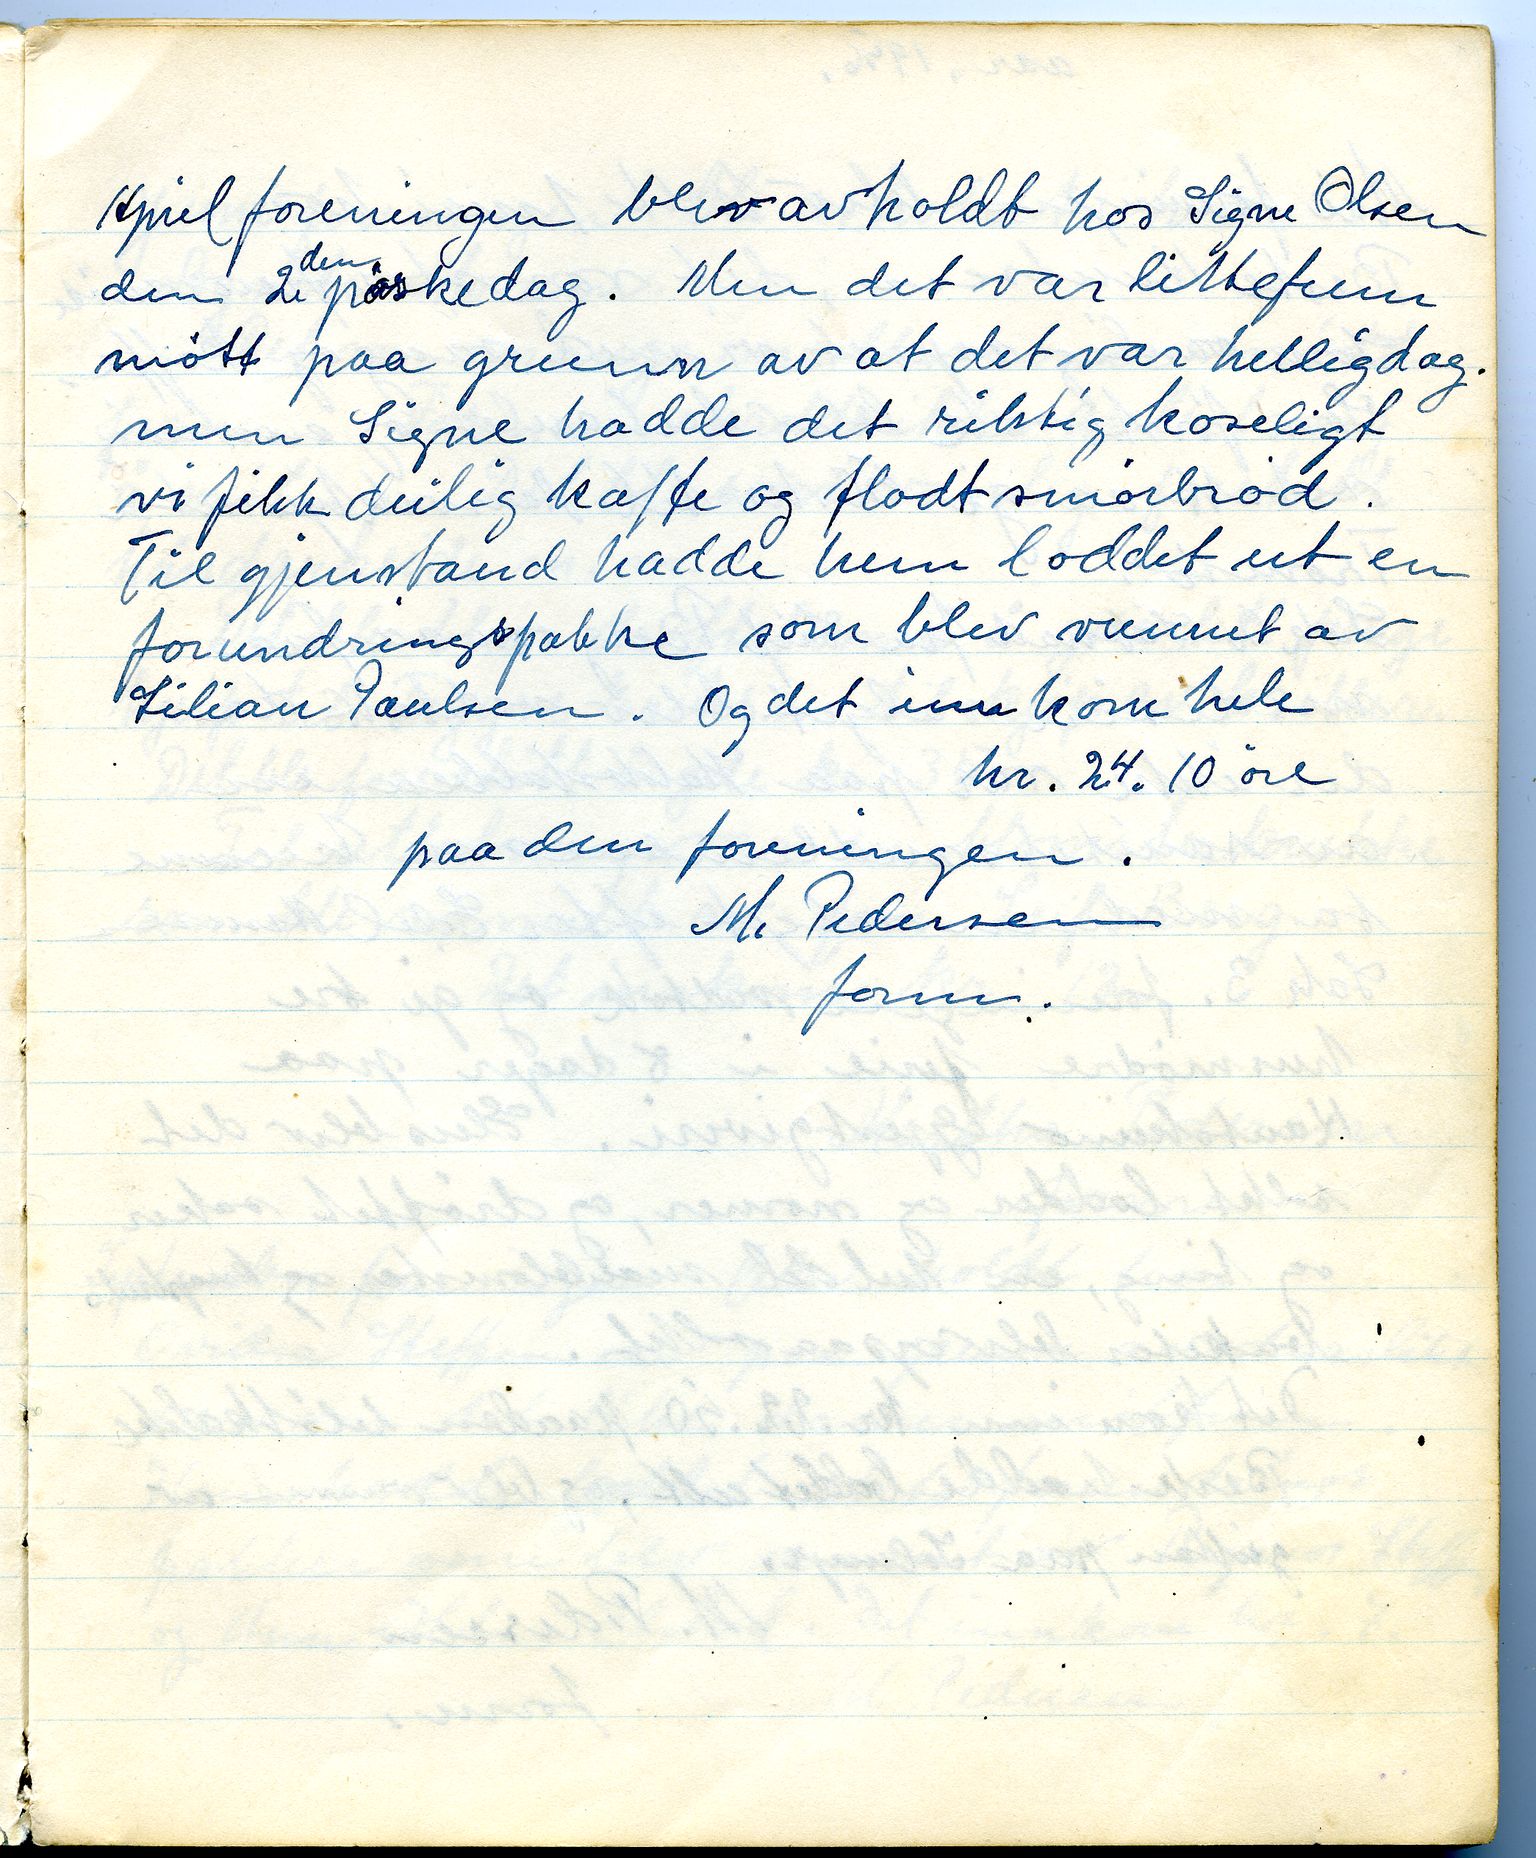 April foreningen blev avholdt hos Signe Olsen
den 2den påskedag. Men det var litte frem
mött paa grunn av at det var helligdag.
men Signe hadde det riktig koseligt
vi fikk deilig kaffe og flodt smörbröd.
Til gjenstand hadde hun loddet ut en
forundringspakke som blev vunnet av
Lilian Paulsen. Og det inn kom hele
kr. 24. 10 öre
paa den foreningen.
M. Pedersen
form.